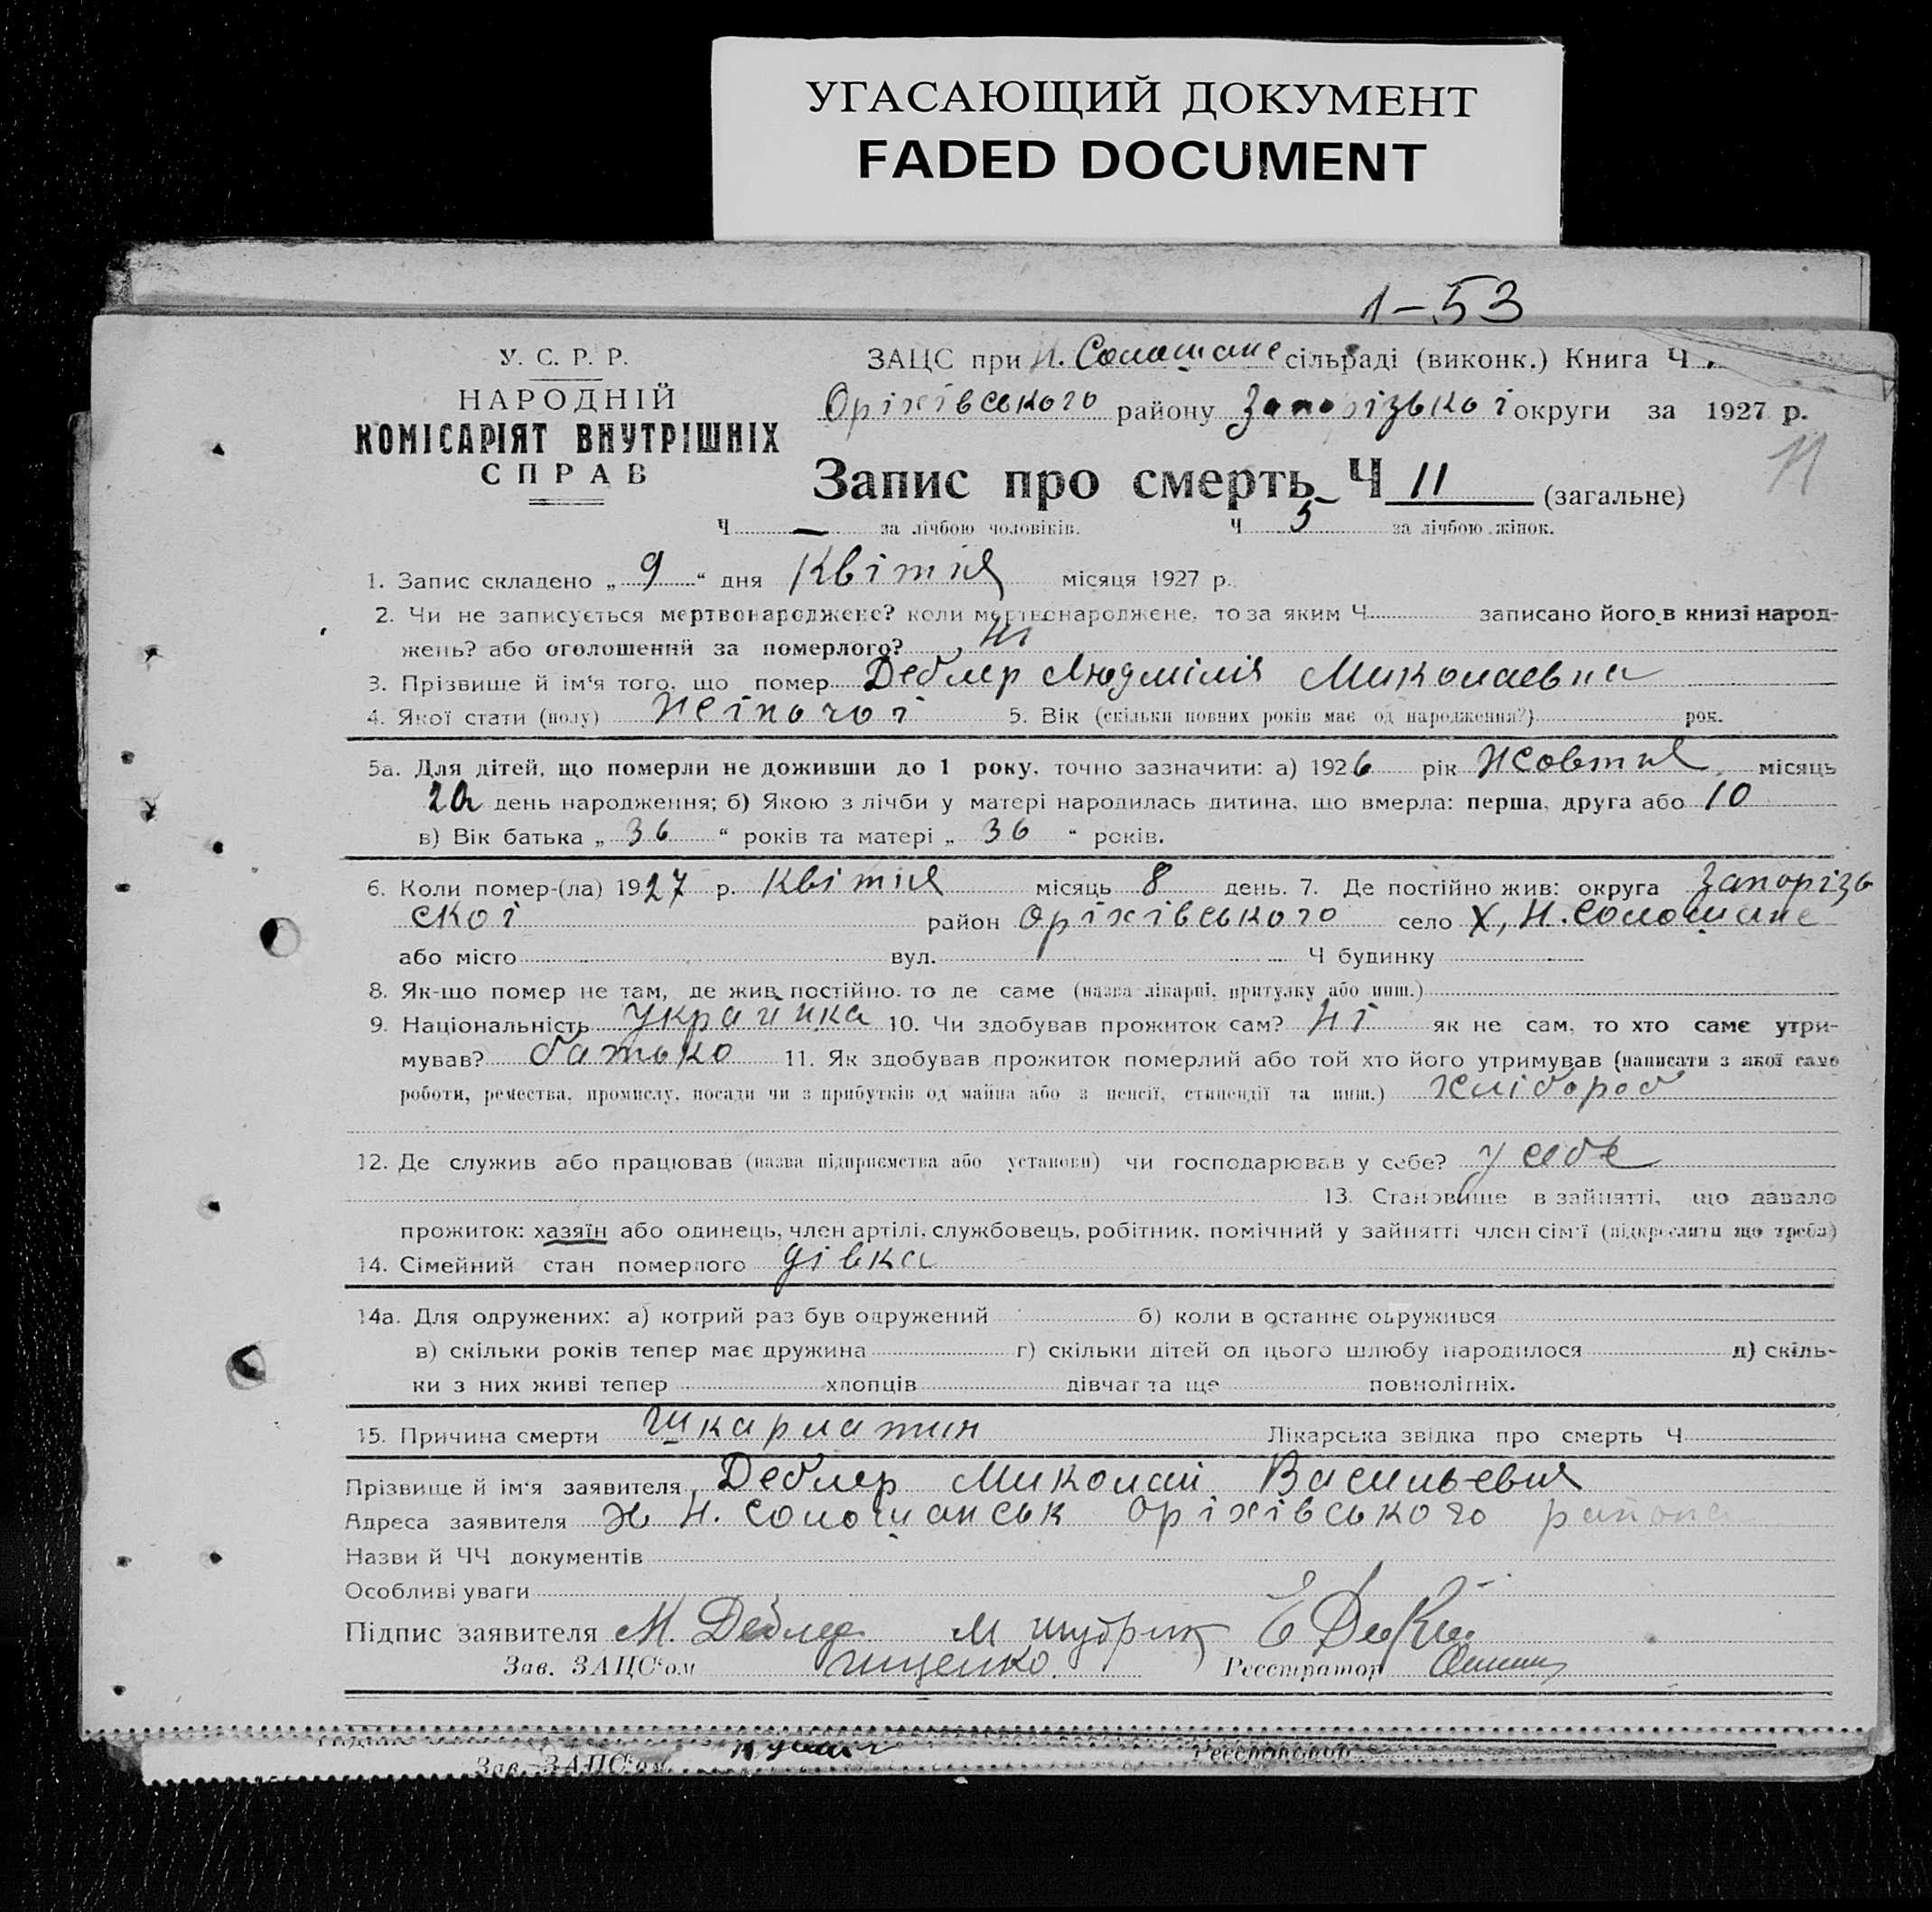 УГАСАЮЩИЙ ДОКУМЕНТ
FADED DOCUMENT
1-53
У. С. Р. Р.
НАРОДНІЙ
КОМІСАРІЯТ ВНУТРІШНІХ
СПРАВ
ЗАЦС при Н. Солошане сільраді (виконк.) Книга Ч
Оріхівського району Запорізької округи за 1927 р.
Запис про смерть Ч 11 (загальне)
11
Ч — за лічбою чоловіків. Ч 5 за лічбою жінок.
1. Запис складено „ 9 “ дня Квітня місяця 1927 р.
2. Чи не записується мертвонароджене? коли мертвонароджене, то за яким Ч записано його в книзі народ-
жень? або оголошений за померлого? Ні
3. Прізвище й ім'я того, що помер Деблер Людмілія Миколаевна
4. Якої стати (полу) жіночоі 5. Вік (скільки повних років має од народження?) рок.
5а. Для дітей, що померли не доживши до 1 року, точно зазначити: а) 1926 рік Жовтня місяць
день народження; б) Якою з лічби у матері народилась дитина, що вмерла: перша, друга або 10
в) Вік батька „ 36 “ років та матері „ 36 “ років.
6. Коли помер-(ла) 1927 р. Квітня місяць 8 день. 7. Де постійно жив: округа Запорізь
скоі район Оріхівського село Х, Н. Солошане
або місто вул. Ч будинку
8. Як-що помер не там, де жив постійно, то де саме (назва лікарні, притулку або инш.)
9. Національність Украінка 10. Чи здобував прожиток сам? Ні як не сам, то хто саме утри-
мував? батько 11. Як здобував прожиток померлий або той хто його утримував (написати з якої саме
роботи, ремества, промислу, посади чи з прибутків од майна або з пенсії, стипендії та инш.) хлібороб
12. Де служив або працював (назва підприємства або установи) чи господарював у себе? у себе
13. Становище в зайнятті, що давало
прожиток: хазяїн або одинець, член артілі, службовець, робітник, помічний у зайнятті член сім'ї (підкреслити що треба)
14. Сімейний стан померлого дівка
14а. Для одружених: а) котрий раз був одружений б) коли в останнє одружився
в) скільки років тепер має дружина г) скільки дітей од цього шлюбу народилося д) скіль-
ки з них живі тепер хлопців дівчат та ще повнолітніх.
15. Причина смерти Шкарлатин Лікарська звідка про смерть Ч
Прізвище й ім'я заявителя Деблер Миколай Васильевич
Адреса заявителя Х Н. Солошанськ Оріхівського района
Назви й ЧЧ документів
Особливі уваги
Підпис заявителя М. Деблер
Зав. ЗАЦС'ом Реєстратор
Зав. ЗАЦС'ом Реєстратор